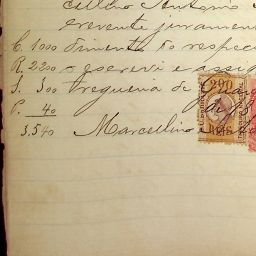 cellino Antonio
crevente juramen
C. 1000 dimento to respec
R. 2200 o escrevi e assig
J. 300 tregueria de
P. 40
3.540 Marcellino
200
REIS